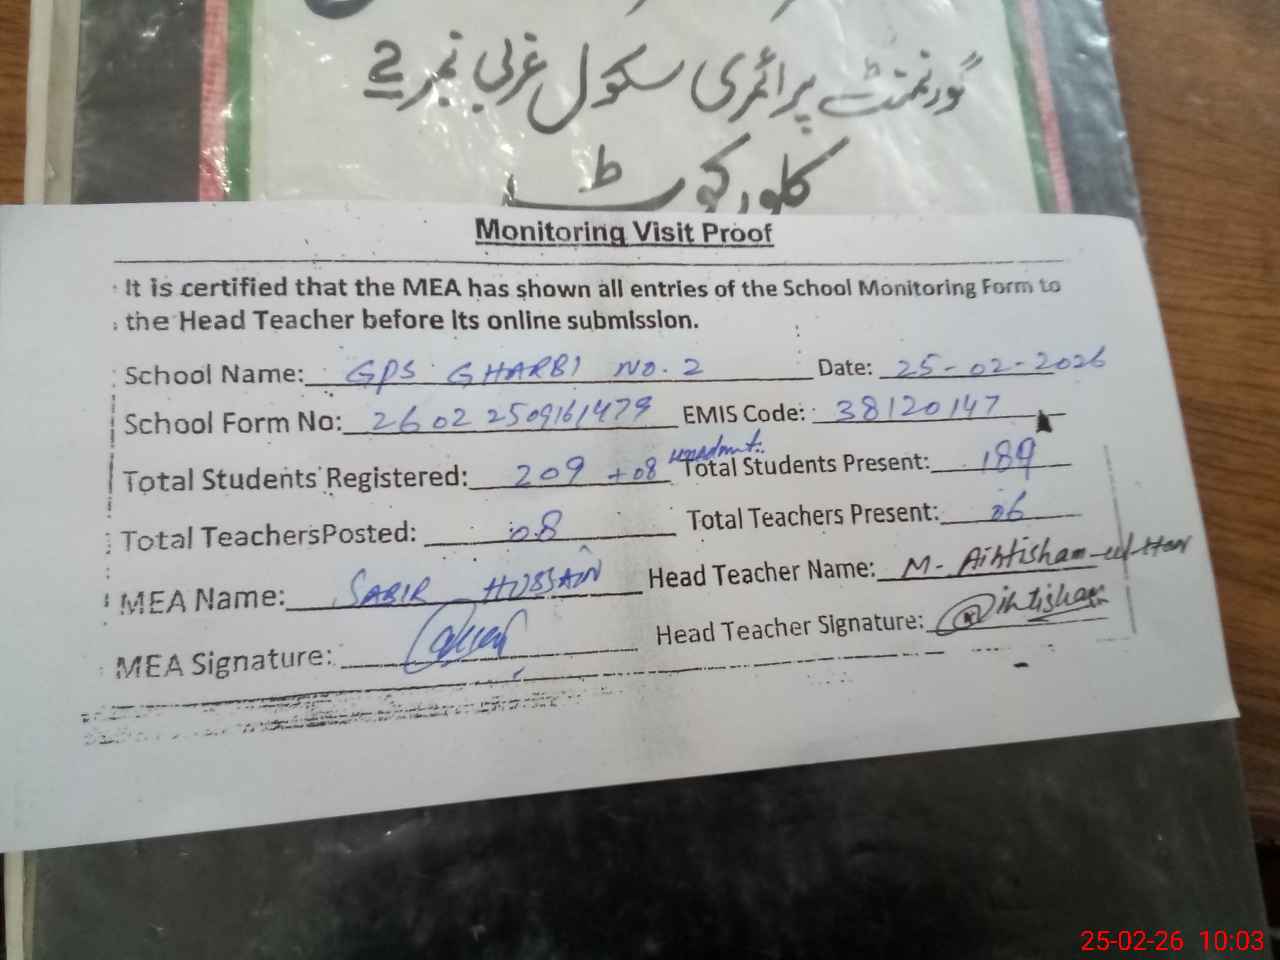 گورنمنٹ پرائمری سکول غربی نمبر 2
کلورکوٹ
Monitoring Visit Proof
It is certified that the MEA has shown all entries of the School Monitoring Form to
the Head Teacher before its online submission.
School Name: GPS GHARBI NO. 2 Date: 25-02-2026
School Form No: 26022509161479 EMIS Code: 38120147
Total Students Registered: 209 +08 Total Students Present: 189
Total TeachersPosted: 08 Total Teachers Present: 06
MEA Name: SABIR HUSSAIN Head Teacher Name: M- Aihtisham-ul-Haq
MEA Signature: Head Teacher Signature: Aihtisham
25-02-26 10:03